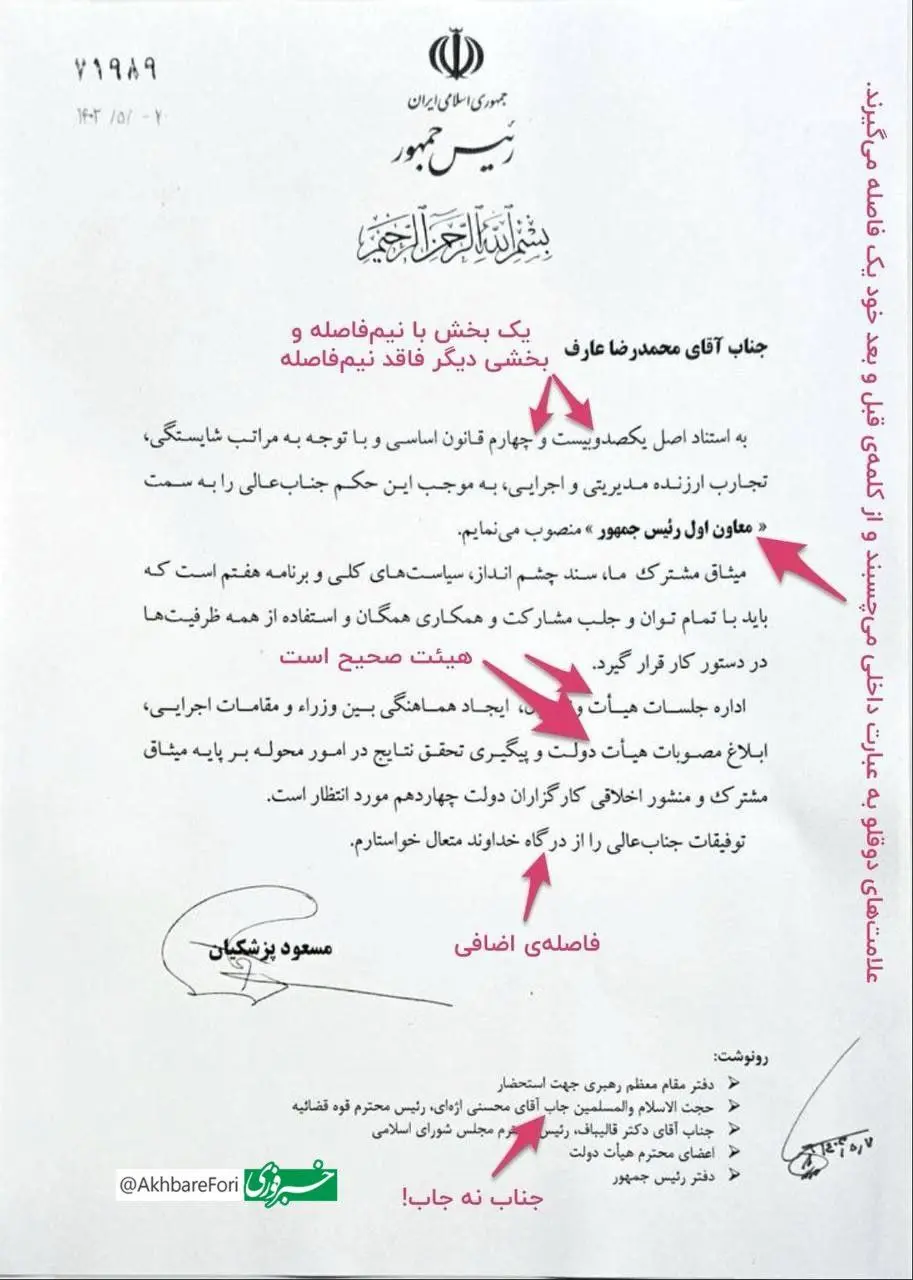 ۷۱۹۸۹
۱۴۰۳ /۵/ - ۷
جمهوری اسلامی ایران
رئیس جمهور
بسم الله الرحمن الرحیم
یک بخش با نیم‌فاصله و
بخشی دیگر فاقد نیم‌فاصله
جناب آقای محمدرضا عارف
به استناد اصل یکصدوبیست و چهارم قانون اساسی و با توجه به مراتب شایستگی،
تجارب ارزنده مدیریتی و اجرایی، به موجب این حکم جناب‌عالی را به سمت
« معاون اول رئیس جمهور » منصوب می‌نمایم.
میثاق مشترک ما، سند چشم انداز، سیاست‌های کلی و برنامه هفتم است که
باید با تمام توان و جلب مشارکت و همکاری همگان و استفاده از همه ظرفیت‌ها
در دستور کار قرار گیرد.
هیئت صحیح است
اداره جلسات هیأت ایجاد هماهنگی بین وزراء و مقامات اجرایی،
ابلاغ مصوبات هیأت دولت و پیگیری تحقق نتایج در امور محوله بر پایه میثاق
مشترک و منشور اخلاقی کارگزاران دولت چهاردهم مورد انتظار است.
توفیقات جناب‌عالی را از در گاه خداوند متعال خواستارم.
فاصله‌ی اضافی
مسعود پزشکیان
علامت‌های دوقلو به عبارت داخلی می‌چسبند و از کلمه‌ی قبل و بعد خود یک فاصله می‌گیرند.
رونوشت:
دفتر مقام معظم رهبری جهت استحضار
حجت الاسلام والمسلمین جاب آقای محسنی اژه‌ای، رئیس محترم قوه قضائیه
جناب آقای دکتر قالیباف، رئیس مجلس شورای اسلامی
اعضای محترم هیأت دولت
دفتر رئیس جمهور
۱۴۰۳/۵/۷
جناب نه جاب!
خبرفوری
@AkhbareFori